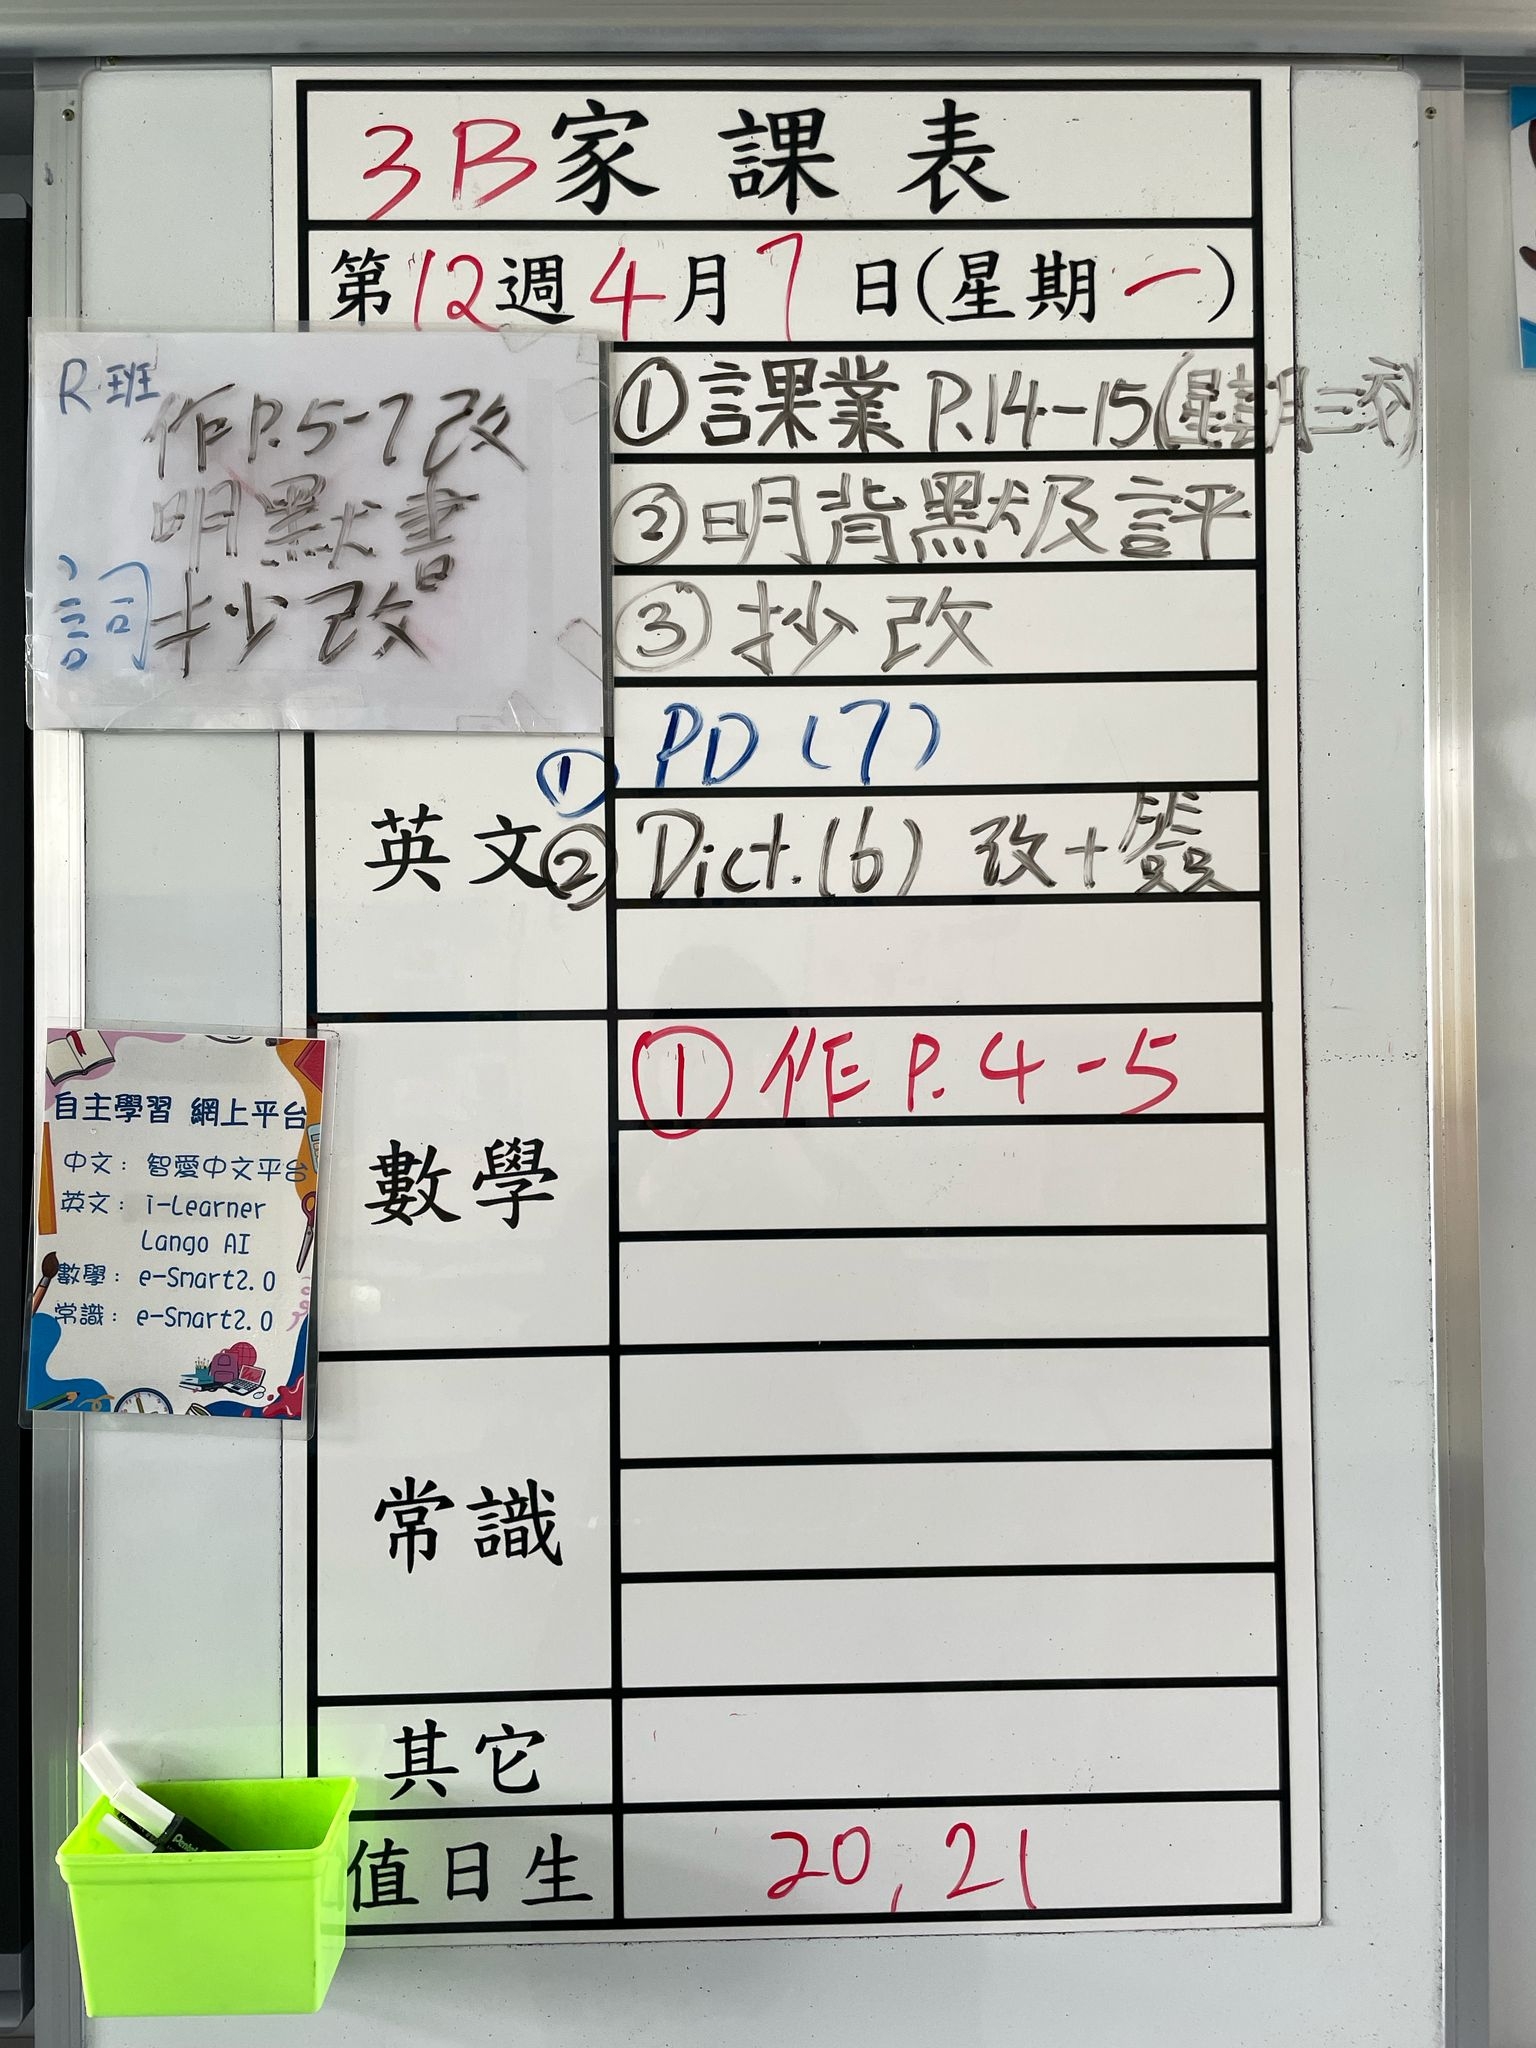 3B家課表
第12週4月7日(星期一)
R班
作P.5-7改
明默書
詞抄改
①課業 P.14-15(星期三交)
②明背默及評
③抄改
英文
① PD(7)
② Dict.(6) 改+簽
數學
①作 P.4-5
常識
其它
值日生
20, 21
自主學習 網上平台
中文：智愛中文平台
英文：i-Learner
Lango AI
數學：e-Smart2.0
常識：e-Smart2.0